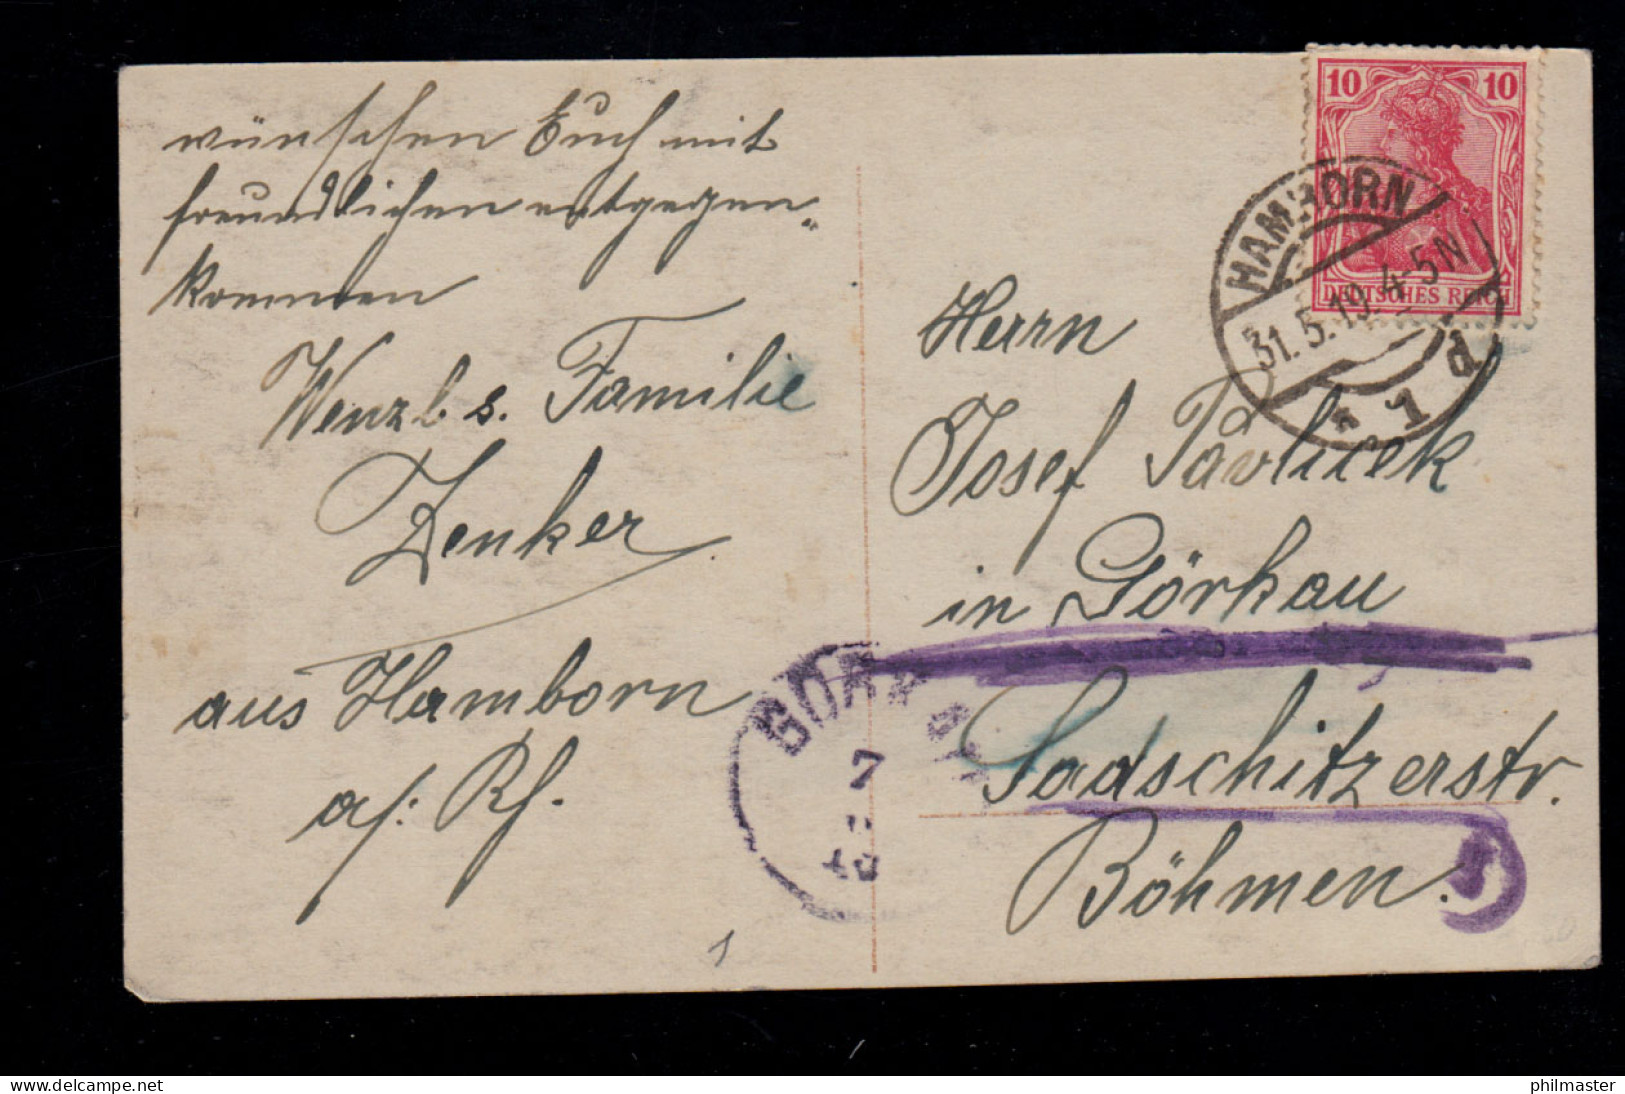 wünschen Euch mit
freundlichen entgegen„
kommen
Wenzl s. Familie
Zenker
aus Hamborn
a/: Rh.
10 10
DEUTSCHES REICH
HAMBORN
31.5.19. 4-5N
* 1 d
Herrn
Josef Pavlicek
in Görkau
Sadschitzerstr.
Böhmen.
GÖRKAU
7
19
1
delcampe.net
philmaster